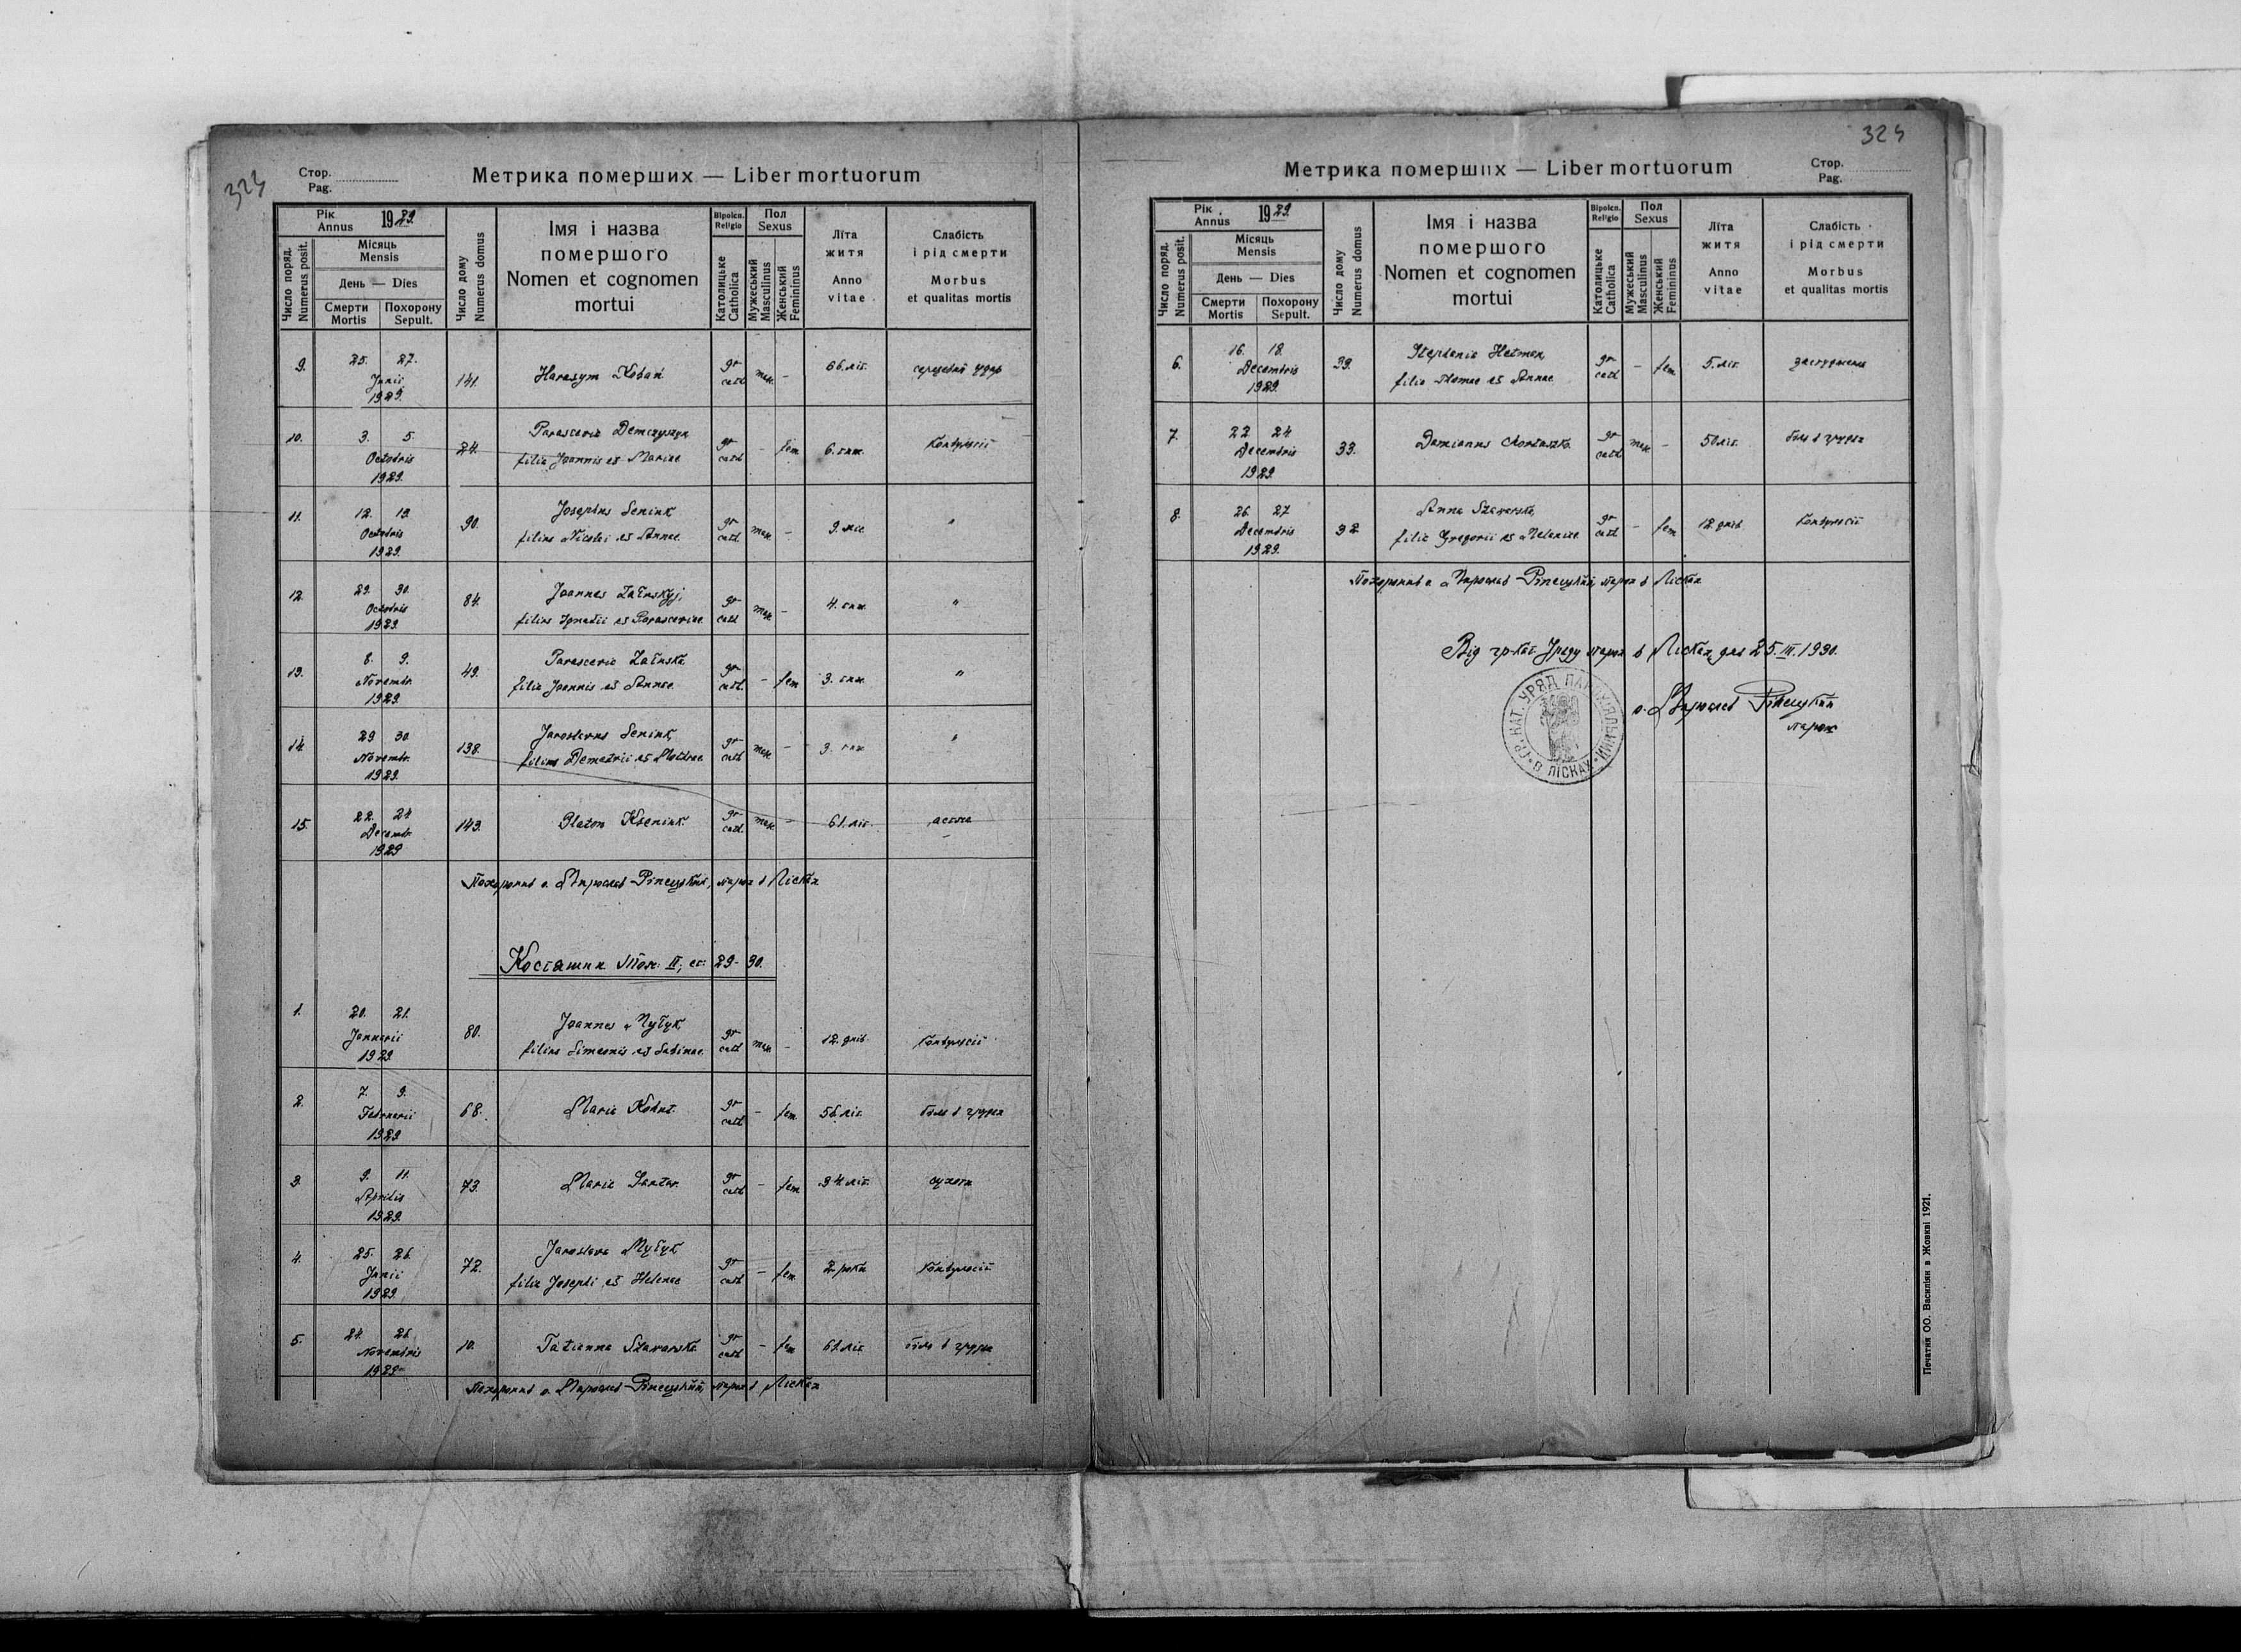 324
Стор.
Pag.
Метрика померших — Liber mortuorum
Рік
Annus
1929.
Число поряд.
Numerus posit.
Місяць
Mensis
День — Dies
Смерти
Mortis
Похорону
Sepult.
Число дому
Numerus domus
Імя і назва
помершого
Nomen et cognomen
mortui
Віроісп.
Religio
Католицьке
Catholica
Пол
Sexus
Мужеський
Masculinus
Женський
Femininus
Літа
житя
Anno
vitae
Слабість
і рід смерти
Morbus
et qualitas mortis
9. 25. 27. Junii 1929. 141. Harasym Koban gr cath mas. - 66 літ. серцевий удар
10. 3. 5. Octobris 1929. 24. Parascevia Demczyszyn
filia Joannis et Mariae gr cath - fem 6. тиж. Конвульсії
11. 12. 13. Octobris 1929. 90. Josephus Seniuk
filius Nicolai et Annae gr cath mas. - 9. міс. "
12. 29. 30. Octobris 1929. 84. Joannes
filius Ignatii et Parasceviae gr cath mas. - 4. тиж. "
13. 8. 9. Novembr. 1929. 49. Parascevia
filia Joannis et Annae gr cath. - fem 3. тиж. "
14. 29 30. Novembr. 1929. 138. Jaroslavus Seniuk
filius Demetrii et gr cath mas. - 3. тиж. "
15. 22. 24 Decembr. 1929 143. Platon Kseniuk gr cath. mas. - 61. літ. астма
Похоронив о. Мирослав Ріпецький, парох в Лісках
Косташин Том: II; ст: 29-30.
1. 20. 21. Januarii 1929 80. Joannes
filius Simeonis et Sabinae gr cath mas. - 12. днів Конвульсії
2. 7. 9. Februarii 1929 68. Maria gr cath - fem 56 літ. біль в грудях
3. 9. 11. Aprilis 1929. 73. Maria gr cath - fem 34 літ. сухоти
4. 25. 26. Junii 1929. 72. Jaroslava
filia Josephi et Helenae gr cath - fem 2 роки Конвульсії
5. 24. 26. Novembris 1929 10. Tatianna Sztawarska gr cath - fem 61. літ. біль в грудях
Похоронив о. Мирослав Ріпецький, парох в Лісках
324
Метрика померших — Liber mortuorum
Стор.
Pag.
Рік
Annus
1929.
Число поряд.
Numerus posit.
Місяць
Mensis
День — Dies
Смерти
Mortis
Похорону
Sepult.
Число дому
Numerus domus
Імя і назва
помершого
Nomen et cognomen
mortui
Віроісп.
Religio
Католицьке
Catholica
Пол
Sexus
Мужеський
Masculinus
Женський
Femininus
Літа
житя
Anno
vitae
Слабість
і рід смерти
Morbus
et qualitas mortis
6. 16. 18. Decembris 1929. 39. Stephania Hetman
filia Thomae et Annae gr cath - fem 5. літ.
7. 22 24 Decembris 1929. 33. Damianus gr cath mas. - 50 літ. біль в грудях
8. 26. 27 Decembris 1929. 32 Anna Sztawarska
filia Gregorii et Melaniae gr cath - fem 12. днів Конвульсії
Похоронив о. Мирослав Ріпецький, парох в Лісках
Від гр-кат. Уряду парох. в Лісках, дня 25.III.1930.
о. Мирослав Ріпецький
парох
ГР. КАТ. УРЯД ПАРОХІЯЛЬНИЙ В ЛІСКАХ
Печатня ОО. Василіян в Жовкві 1921.